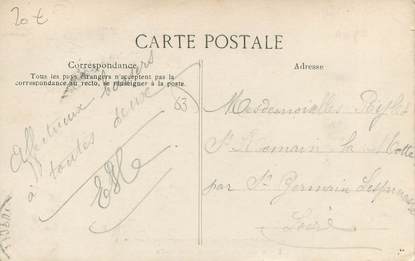 20 €
CARTE POSTALE
Correspondance
Tous les pays étrangers n'acceptent pas la
correspondance au recto, se renseigner à la poste.
Adresse
Affectueux baisers
à toutes deux
63
Mesdemoiselles
St Romain la Motte
par St Germain Lespinasse
Loire